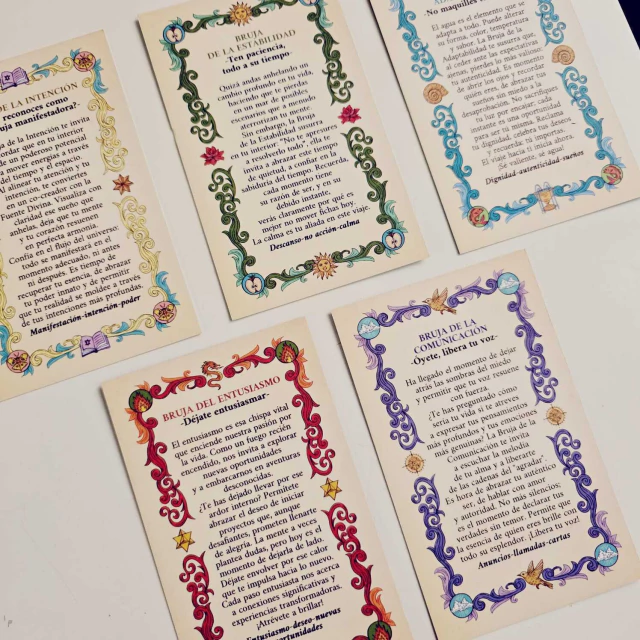 DE LA INTENCIÓN
reconoces como
manifestadora?-
de la Intención te invita
recordar que en tu interior
un poderoso potencial
a mover energía a través
del tiempo y el espacio.
Al alinear tu atención y tu
intención, te conviertes
en un co-creador con la
Fuente Divina. Visualiza con
claridad ese sueño que
anhelas, deja que tu mente
y tu corazón resuenen
en perfecta armonía.
Confía en el flujo del universo:
todo se manifestará en el
momento adecuado, ni antes
ni después. Es tiempo de
recuperar tu esencia, de abrazar
tu poder innato y de permitir
que tu realidad se moldee a través
de tus intenciones más profundas.
Manifestación-intención-poder
BRUJA
DE LA ESTABILIDAD
-Ten paciencia,
todo a su tiempo-
Quizá andas anhelando un
cambio profundo en tu vida,
haciendo que te pierdas
en un mar de posibles
escenarios que a menudo
aterrorizan tu mente.
Sin embargo, la Bruja
de la Estabilidad susurra
en tu interior: "No te apresures
a resolverlo todo", ella te
invita a abrazar este tiempo
de quietud, a confiar en la
sabiduría del tiempo. Recuerda,
cada momento tiene
su razón de ser, y en su
debido instante,
verás claramente por qué es
mejor no mover fichas hoy.
La calma es tu aliada en este viaje.
Descanso-no acción-calma
-No maquilles
El agua es el elemento que se
adapta a todo. Puede alterar
su forma, color, temperatura
y sabor. La Bruja de la
Adaptabilidad te susurra que
al ceder ante las expectativas
ajenas, pierdes lo más valioso:
tu autenticidad. Es momento
de abrir tus ojos y recordar
quien eres, de abrazar tus
sueños sin miedo a la
desaprobación. No sacrifiques
tu luz por encajar, cada
instante es una oportunidad
para ser tú misma. Reclama
tu dignidad, celebra tus deseos
y recuerda: tú importas.
El viaje hacia ti inicia ahora.
¡Sé valiente, sé agua!
Dignidad-autenticidad-sueños
BRUJA DEL ENTUSIASMO
-Déjate entusiasmar-
El entusiasmo es esa chispa vital
que enciende nuestra pasión por
la vida. Como un fuego recién
encendido, nos invita a explorar
nuevas oportunidades
y a embarcarnos en aventuras
desconocidas.
¿Te has dejado llevar por ese
ardor interno? Permítete
abrazar el deseo de iniciar
proyectos que, aunque
desafiantes, prometen llenarte
de alegría. La mente a veces
plantea dudas, pero hoy es el
momento de dejarla de lado.
Déjate envolver por ese calor
que te impulsa hacia lo nuevo.
Cada paso entusiasta nos acerca
a conexiones significativas y
experiencias transformadoras.
¡Atrévete a brillar!
Entusiasmo-deseo-nuevas
oportunidades
BRUJA DE LA
COMUNICACIÓN
-Óyete, libera tu voz-
Ha llegado el momento de dejar
atrás las sombras del miedo
y permitir que tu voz resuene
con fuerza.
¿Te has preguntado cómo
sería tu vida si te atreves
a expresar tus pensamientos
más profundos y tus emociones
más genuinas? La Bruja de la
Comunicación te invita
a escuchar la melodía
de tu alma y a liberarte
de las cadenas del "agradar".
Es hora de abrazar tu auténtico
ser, de hablar con amor
y autoridad. No más silencios:
es el momento de declarar tus
verdades sin temor. Permite que
la esencia de quien eres brille con
todo su esplendor. ¡Libera tu voz!
Anuncios-llamadas-cartas